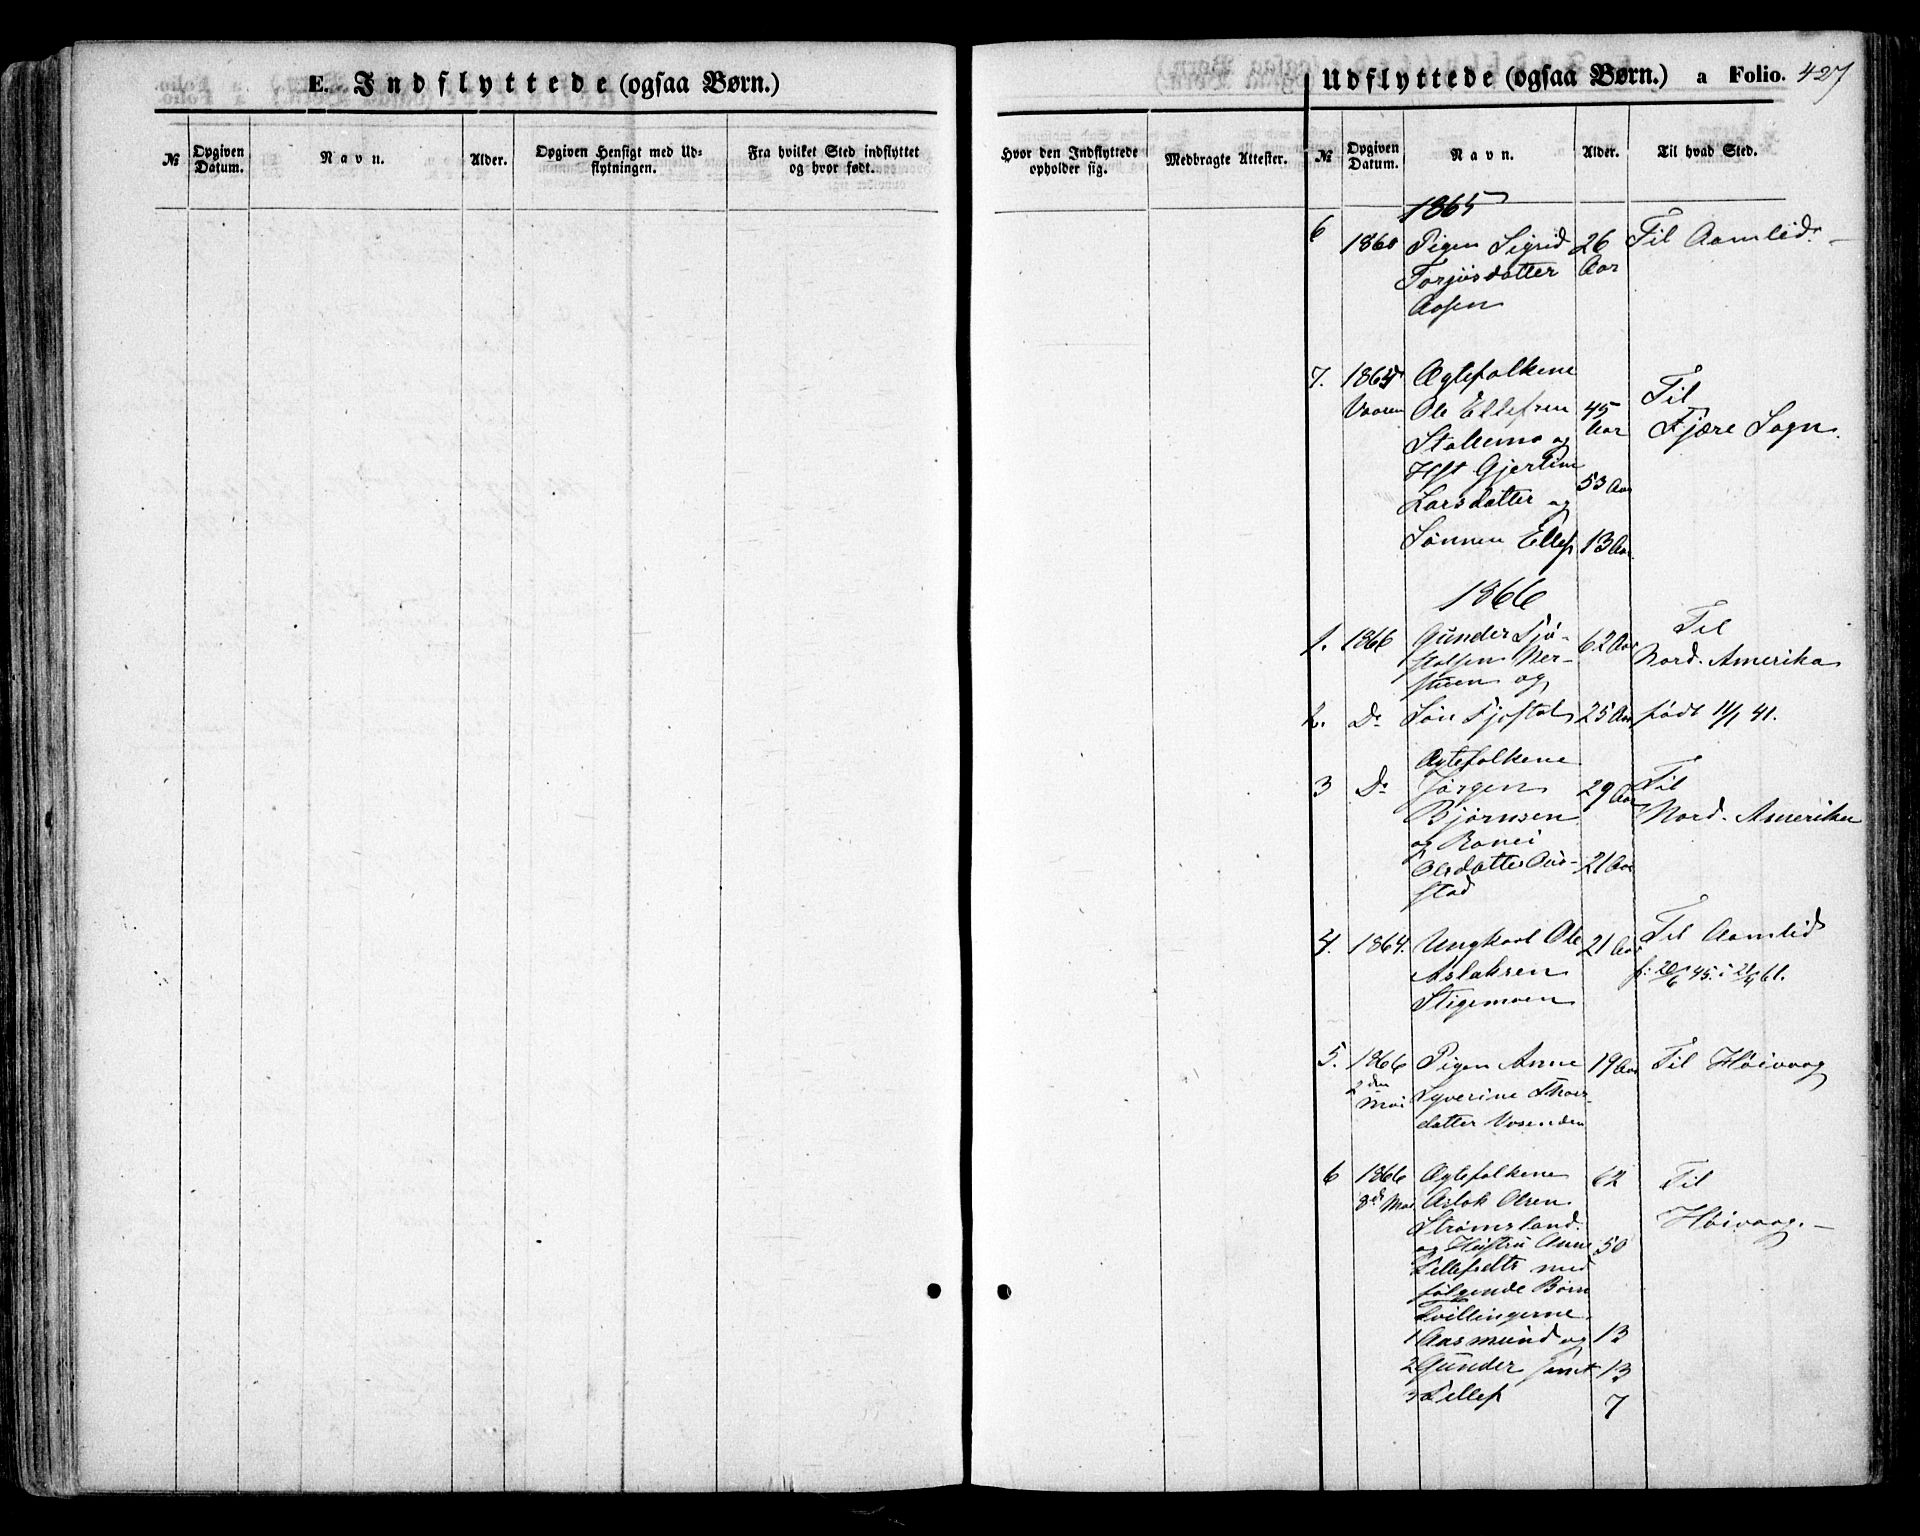 E. Indflyttede (ogsaa Børn.)
Udflyttede (ogsaa Børn.) a Folio. 427
№
Opgiven Datum.
Navn.
Alder.
Opgiven Hensigt med Ud-
flytningen.
Fra hvilket Sted indflyttet
og hvor født.
Hvor den Indflyttede
opholder sig.
Medbragte Attester.
№
Opgiven Datum.
Navn.
Alder.
Til hvad Sted.
1865
6 1860 Pigen Sigrid 26 Til Aamlid.
Torjusdatter Aar
Aasen
7. 1865 Ægtefolkene
Vaaren Ole Ellefsen 45 Til
Stallemo og Aar Fjære Sogn.
Hst Gjertine
Larsdatter og 53 Aar
Sønnen Ellef 13 Aar
1866
1. 1866 Gunder Fjø- 62 Aar Til
stølsen Ner- Nord. Amerika
stuen og
2. Do Søn Fjøstol 25 Aar født 11/1 41.
Ægtefolkene
3 Do Jørgen 29 Aar Til
Bjørnsen Nord. Amerika
og Ronei
Olsdatter Aas- 21 Aar
stad
4. 1864. Ungkarl Ole 21 Aar Til Aamlid
Aslaksen f: 20/6 45. i 21/4 61.
Stigemoen
5. 1866 Pigen Anne 19 Aar Til Høivaag
2den Mai Syverine Thors-
datter Vosenden
6 1866 Ægtefolkene 62 Til
8de Mai Aslak Olsen Høivaag.
Strømsland.
og Hustru Anne 50
Tellefsdtr med
følgende Børn
Tvillingerne
1 Aasmund og 13
2 Gunder samt 13
3 Tellef 7